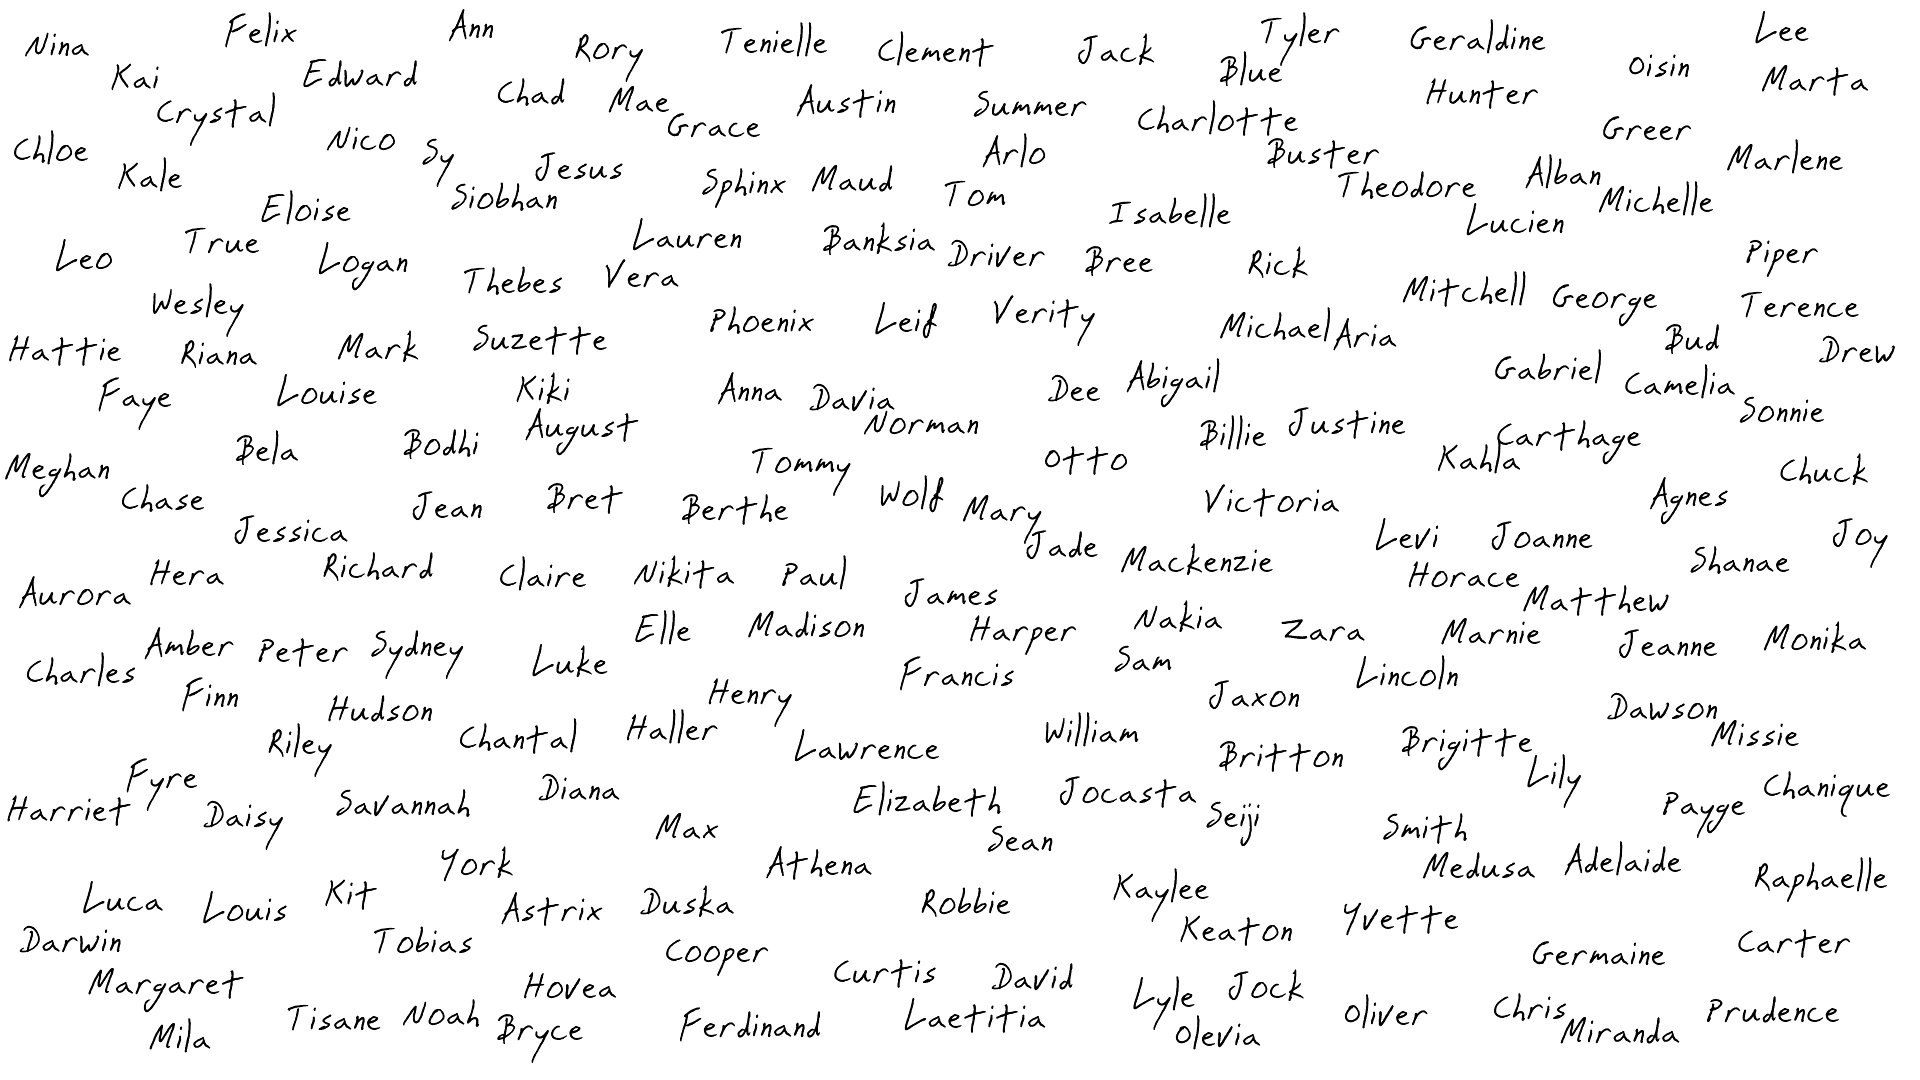 Nina Felix Ann Rory Tenielle Clement Jack Tyler Geraldine Lee
Kai Edward Chad Mae Austin Summer Blue Hunter Oisin Marta
Crystal Grace Charlotte Greer
Chloe Nico Sy Jesus Arlo Buster Marlene
Kale Siobhan Sphinx Maud Tom Theodore Alban Michelle
Eloise Isabelle Lucien
Leo True Logan Lauren Banksia Driver Bree Rick Piper
Thebes Vera Mitchell George Terence
Wesley Phoenix Leif Verity
Hattie Riana Mark Suzette Michael Aria Bud Drew
Faye Louise Kiki Anna Davia Dee Abigail Gabriel Camelia Sonnie
Bela Bodhi August Norman Billie Justine Carthage
Meghan Tommy Otto Kahla Chuck
Chase Jean Bret Berthe Wolf Mary Victoria Agnes
Jessica Jade Levi Joanne Joy
Aurora Hera Richard Claire Nikita Paul James Mackenzie Horace Matthew Shanae
Amber Peter Sydney Elle Madison Harper Nakia Zara Marnie Jeanne Monika
Charles Luke Francis Sam Lincoln
Finn Hudson Henry Jaxon Dawson
Riley Chantal Haller Lawrence William Britton Brigitte Missie
Fyre Diana Lily Chanique
Harriet Daisy Savannah Max Elizabeth Jocasta Seiji Smith Payge
Sean
York Athena Medusa Adelaide Raphaelle
Luca Louis Kit Astrix Duska Robbie Kaylee Yvette
Darwin Tobias Cooper Keaton Germaine Carter
Margaret Hovea Curtis David Lyle Jock
Mila Tisane Noah Bryce Ferdinand Laetitia Olevia Oliver Chris Miranda Prudence